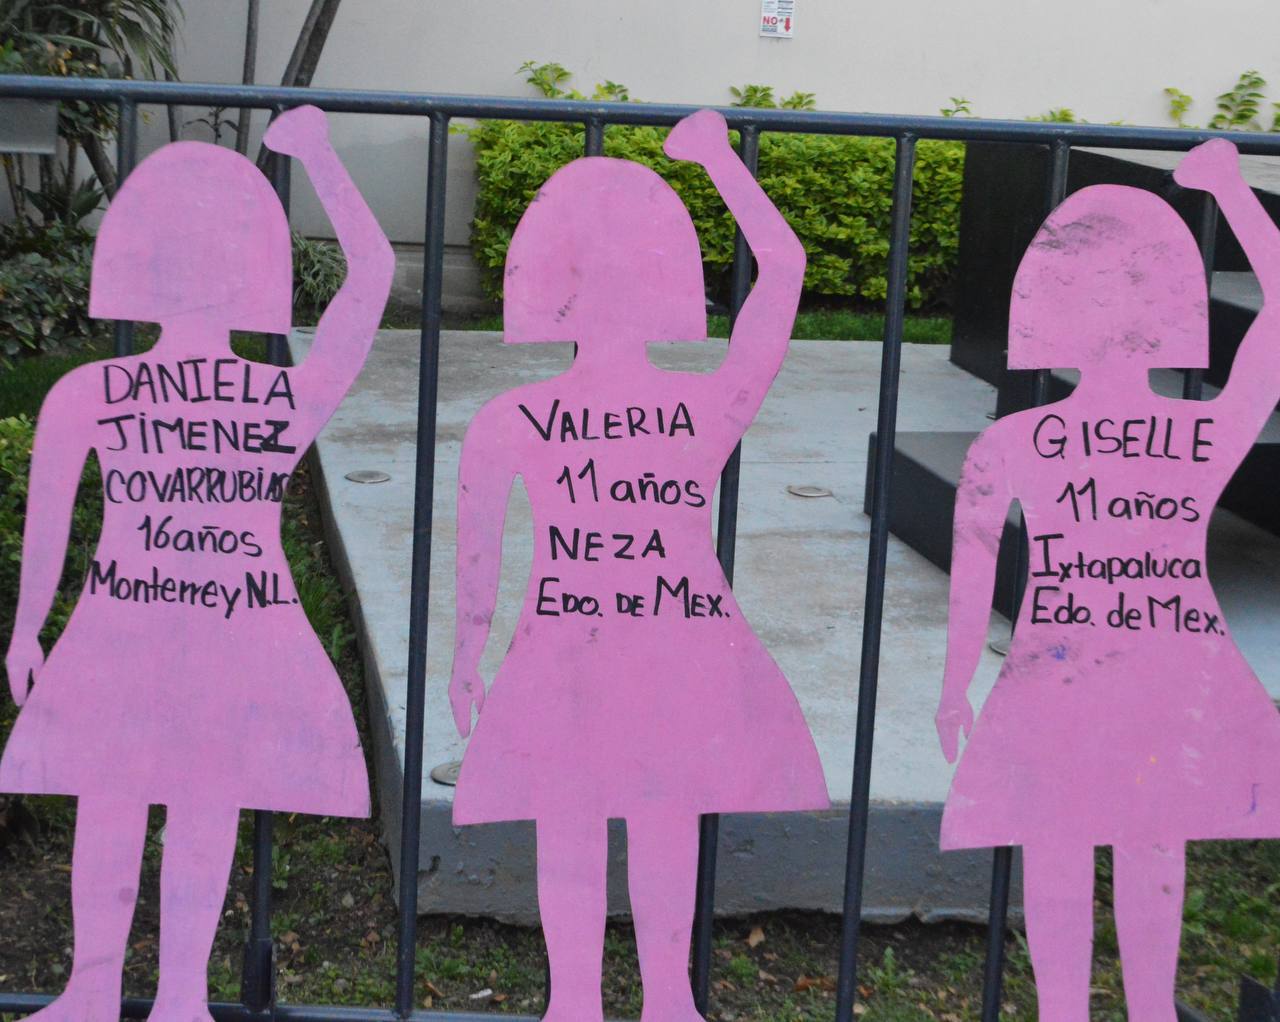 NO
DANIELA
JIMENEZ
COVARRUBIAS
16 años
Monterrey N.L.
VALERIA
11 años
NEZA
EDO. DE MEX.
GISELLE
11 años
Ixtapaluca
Edo. de Mex.